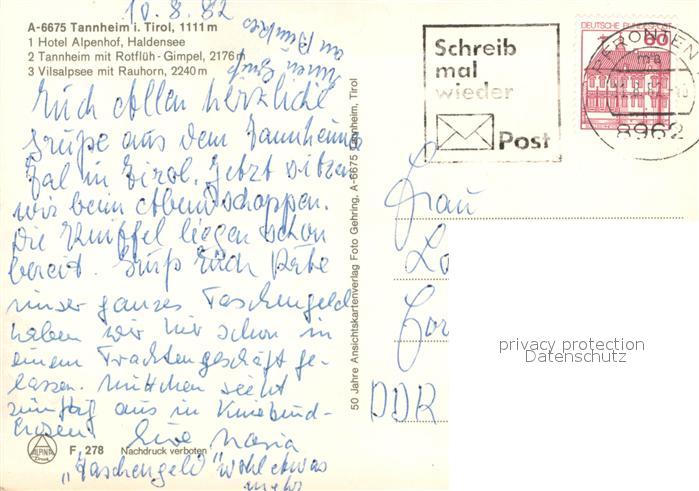 10.8.82
A-6675 Tannheim i. Tirol, 1111 m
1 Hotel Alpenhof, Haldensee
2 Tannheim mit Rotflüh - Gimpel, 2176 m
3 Vilsalpsee mit Rauhorn, 2240 m
Euch Allen herzliche
Grüße aus dem Tannheimer
Tal in Tirol. Jetzt sitzen
wir beim Abendschoppen.
Die liegen schon
bereit. Grüß Euch
unser ganzes Taschengeld
haben wir hier schon in
einem Trachtengeschäft ge-
lassen. sieht
zünftig aus in Kniebund-
hosen! Eure Maria
"Taschengeld" wohl etwas
mehr
ALPINA
Druck
F 278 Nachdruck verboten
50 Jahre Ansichtskartenverlag Foto Gehring, A-6675 Tannheim, Tirol
Schreib
mal
wieder
Post
DEUTSCHE BUNDESPOST
60
PFRONTEN
8962
Frau
DDR
privacy protection
Datenschutz